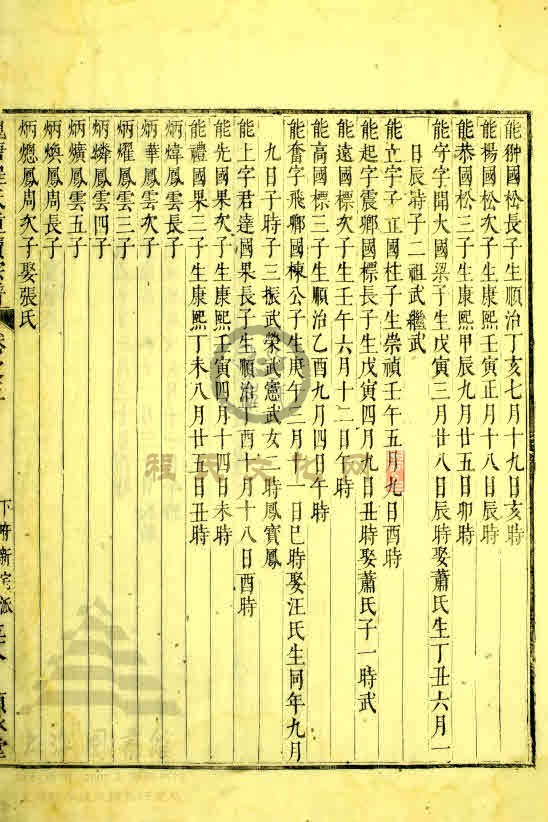 能翀國松長子生順治丁亥七月十九日亥時
能揚國松次子生康熙壬寅正月十八日辰時
能恭國松三子生康熙甲辰九月廿五日卯時
能守字開大國梁子生戊寅三月廿八日辰時娶蕭氏生丁丑六月一
日辰時子二祖武繼武
能立字子正國柱子生崇禎壬午五月九日酉時
能起字震卿國標長子生戊寅四月九日丑時娶蕭氏子一時武
能遠國標次子生壬午六月十二日午時
能高國標三子生順治乙酉九月四日午時
能奮字飛卿國棟公子生庚午二月十一日巳時娶汪氏生同年九月
九日子時子三振武榮武憲武女二時鳳寶鳳
能上字君達國果長子生順治丁酉十月十八日酉時
能先國果次子生康熙壬寅四月十四日未時
能禮國果三子生康熙丁未八月廿五日丑時
炳煒鳳雲長子
炳華鳳雲次子
炳耀鳳雲三子
炳燐鳳雲四子
炳爌鳳雲五子
炳煥鳳周長子
炳熜鳳周次子娶張氏
下府新宅派
程氏文化网